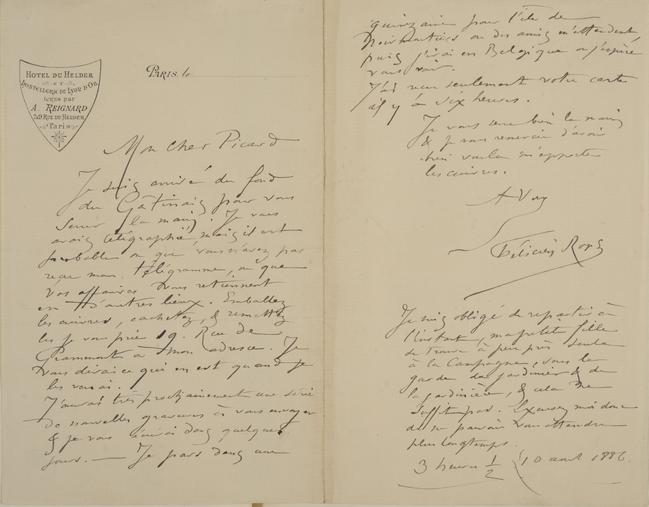 HOTEL DU HELDER
ET
HOSTELLERIE DU LYON D'OR
TENUS PAR
A. REIGNARD
7&9 RUE DU HELDER
Paris
PARIS, le
Mon cher Picard
Je suis arrivé du fond
du Gâtinais pour vous
serrer la main. Je vous
avais télégraphié, mais il est
probable ou que vous n'avez pas
reçu mon télégramme, ou que
vos affaires vous retiennent
en d'autres lieux. Emballez
les cuivres, cachetez, & remettez
les je vous prie 19. Rue de
Grammont à mon adresse. Je
vous dirai ce qui en est quand je
les verrai.
J'aurai très prochainement une série
de nouvelles gravures à vous envoyer
& je vous écrirai dans quelques
jours. — Je pars dans une
quinzaine pour l'île de
Noirmoutiers où des amis m'attendent
puis j'irai en Belgique où j'espère
vous voir.
J'ai reçu seulement votre carte
il y a six heures.
Je vous serre bien la main
& je vous remercie d'avoir
bien voulu m'apporter
les cuivres.
A Vous
Félicien Rops
Je suis obligé de repartir à
l'instant, ma petite fille
se trouve à peu près seule
à la campagne, sous la
garde du jardinier & de
la jardinière, & cela ne
suffit pas. Excusez moi donc
de ne pouvoir vous attendre
plus longtemps.
3 heures 1/2 10 août 1886